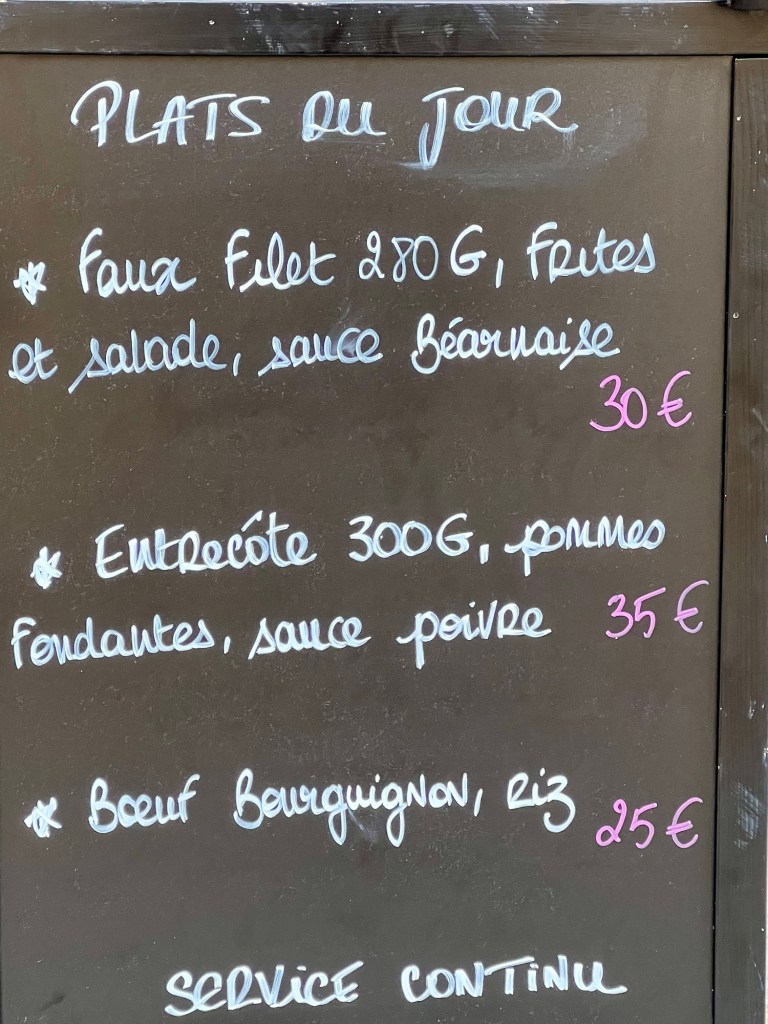 PLATS DU JOUR
* Faux Filet 280G, Frites
et salade, sauce Béarnaise
30€
* Entrecôte 300G, pommes
Fondantes, sauce poivre 35€
* Bœuf Bourguignon, Riz 25€
SERVICE CONTINU